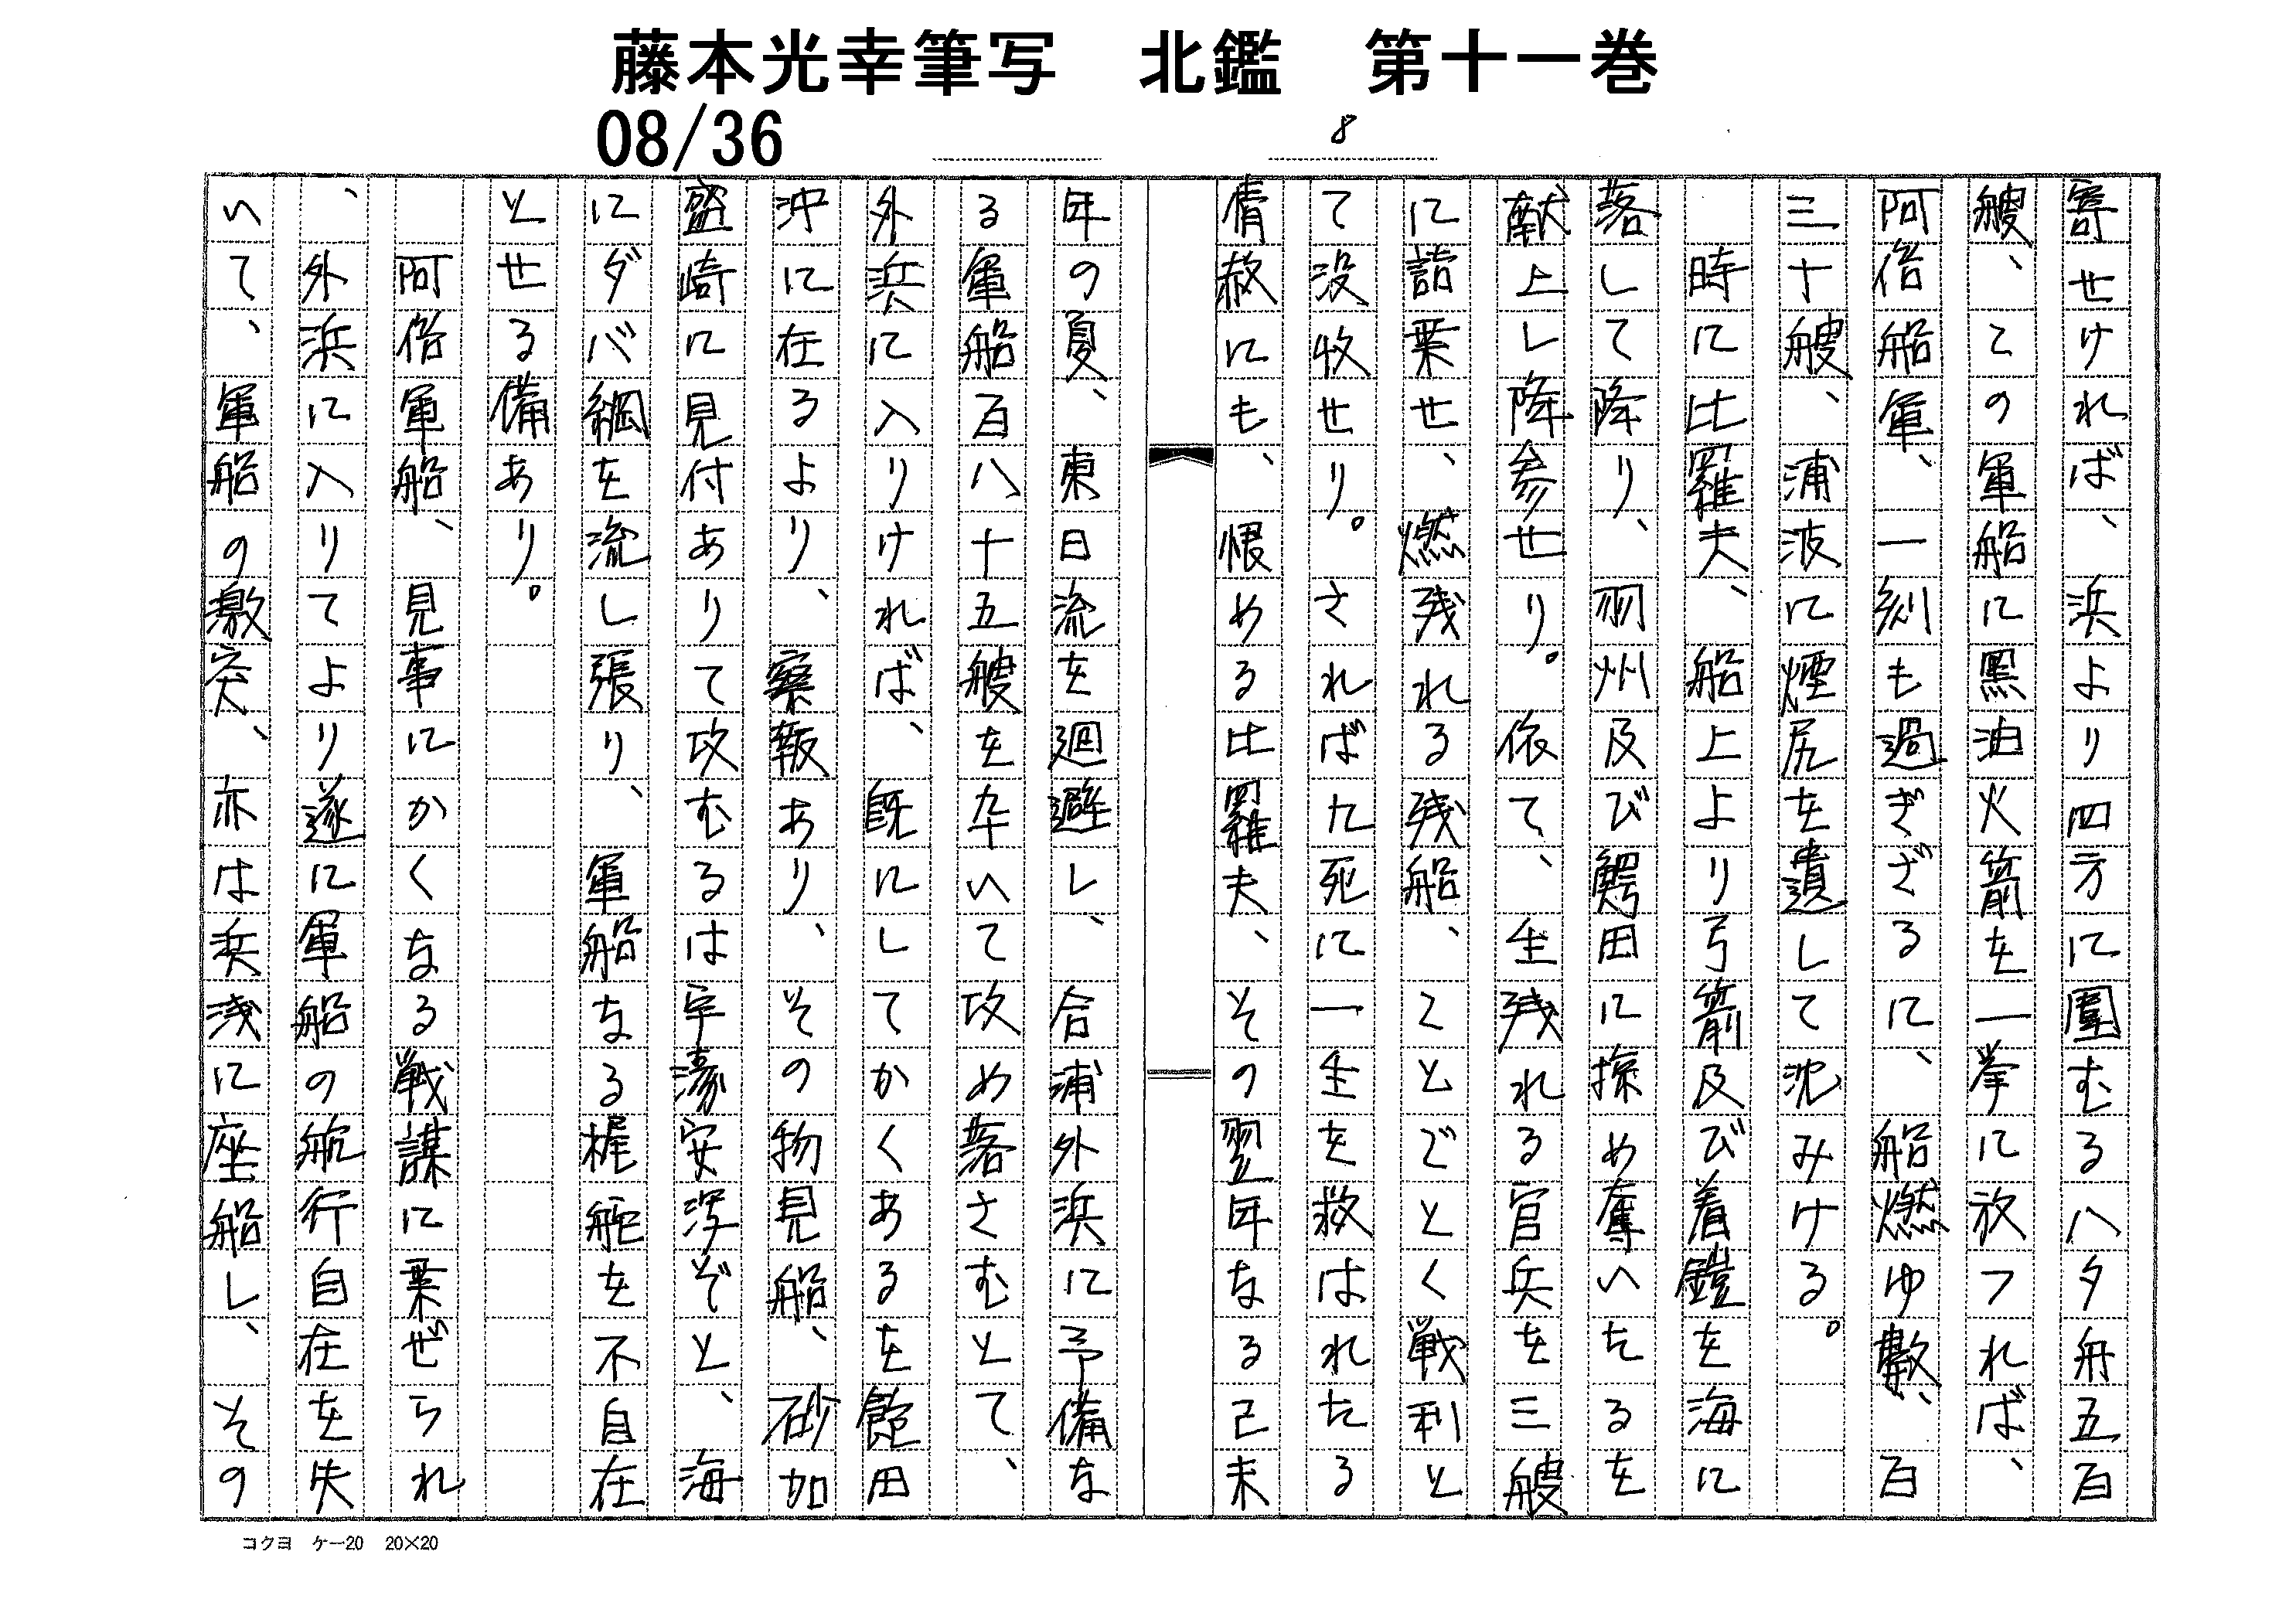 藤本光幸筆写　北鑑　第十一巻
08/36
8
寄せければ、浜より四方に圍むるハタ舟五百
艘、との軍船に黒油火箭を一挙に放つれば、
阿倍船軍、一刻も過ぎざるに、船燃ゆ數、百
三十艘、浦波に煙尻を遺して沈みける。
時に比羅夫、船上より弓箭及び着鎧を海に
落して降り、羽州及び鰐田に掠め奪いたるを
献上し降参せり。依て、生残れる官兵を三艘
に詰乗せ、燃残れる残船、ことごとく戦利と
て没收せり。されば九死に一生を救はれたる
情赦にも、恨める比羅夫、その翌年なる己未
年の夏、東日流を廻避し、合浦外浜に予備な
る軍船百八十五艘を卆いて攻め落さむとて、
外浜に入りければ、既にしてかくあるを飽田
沖に在るより、察報あり、その物見船、砂加
盛崎に見付ありて攻むるは宇濤安浮ぞと、海
にダバ綱を流し張り、軍船なる梶舵を不自在
とせる備あり。
阿倍軍船、見事にかくなる戦謀に乗ぜられ
、外浜に入りてより遂に軍船の航行自在を失
いて、軍船の激突、亦は兵浅に座船し、その
コクヨ　ケー20　20×20